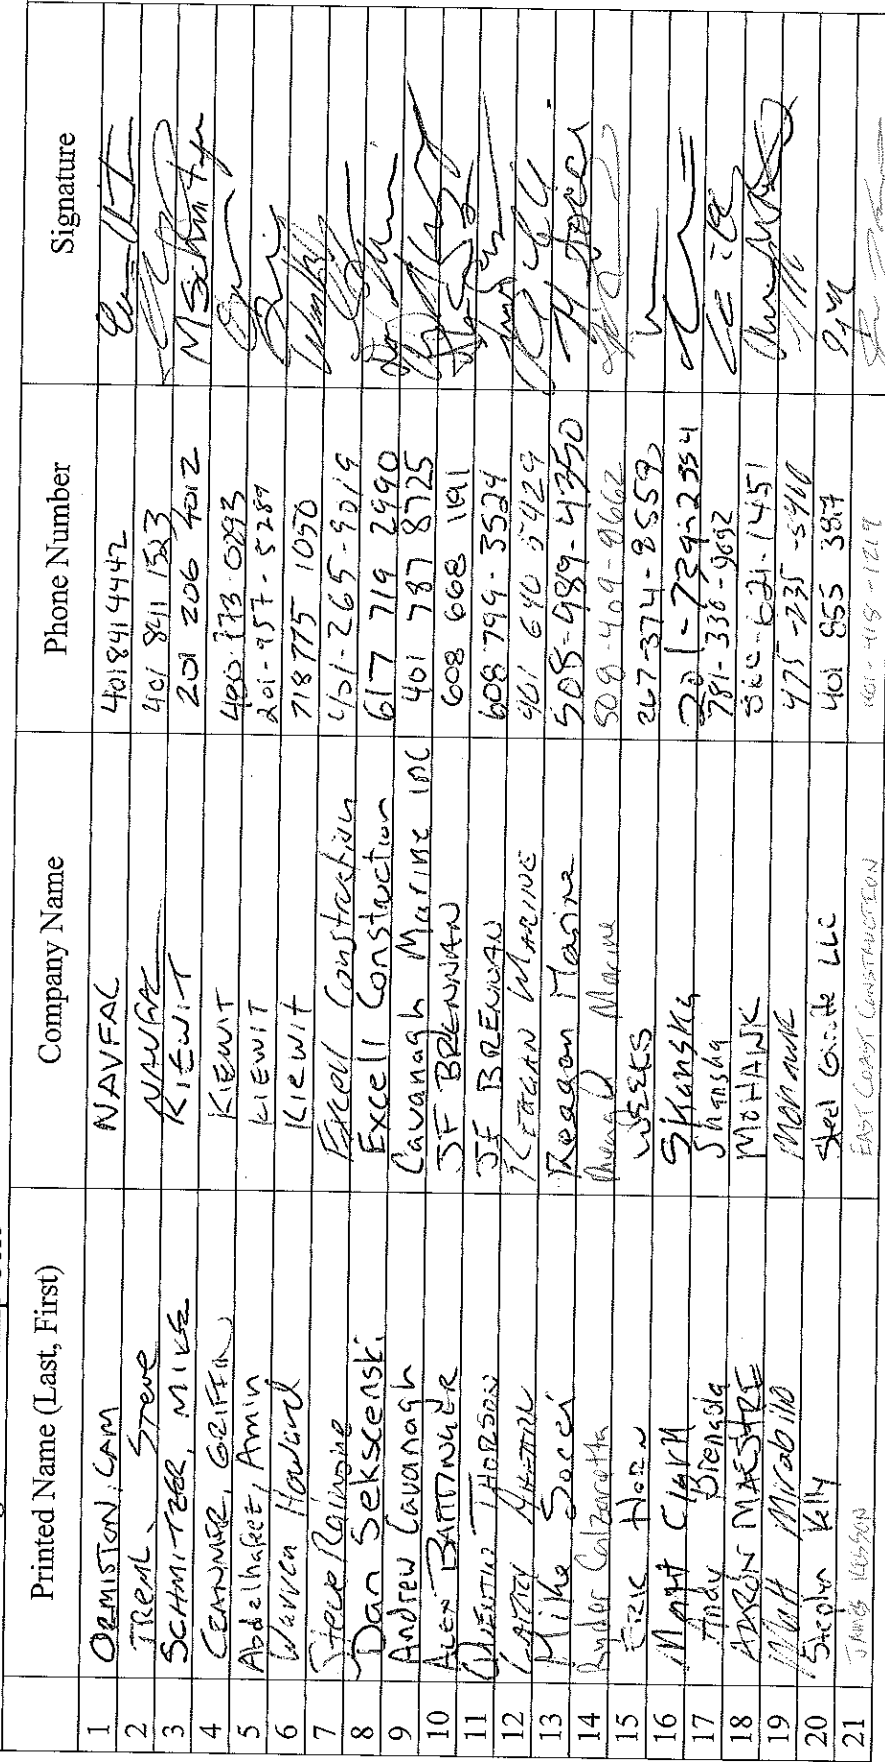 Printed Name (Last, First) Company Name Phone Number Signature
1 ORMISTON, CAM NAVFAC 401 841 4442
2 TREML, Steve NAVFAC 401 841 1523
3 SCHMITZER, MIKE KIEWIT 201 206 4012 M Schmitzer
4 GRIFFIN KIEWIT
5 Abdelhafez, Amin KIEWIT 201-957-5289
6 Warren Howard Kiewit 718 775 1050
7 Steve Excell Construction 401-265-9019
8 Dan Sekscenski Excell Construction 617 719 2990
9 Andrew Cavanagh Cavanagh Marine INC 401 787 8725
10 ALEX BATTINGER JF BRENNAN 608 668 1191
11 QUENTIN THORSON JF BRENNAN 608 799-3524
12 REAGAN MARINE 401 640 5429
13 Mike Socci Reagan Marine 508-989-4350
14 Ryder Calzaretta Marine 508-409-9662
15 ERIC HORN WEEKS 267-374-8559
16 Matt Clark Skanska
17 Andy Skanska 781-336-9692
18 AARON MAESTRE MOHAWK
19 Matt Mirabilio Mohawk 475-235-5910
20 Stephen Kelly Steel LLC 401 855 3817
21 JAMES EAST COAST CONSTRUCTION